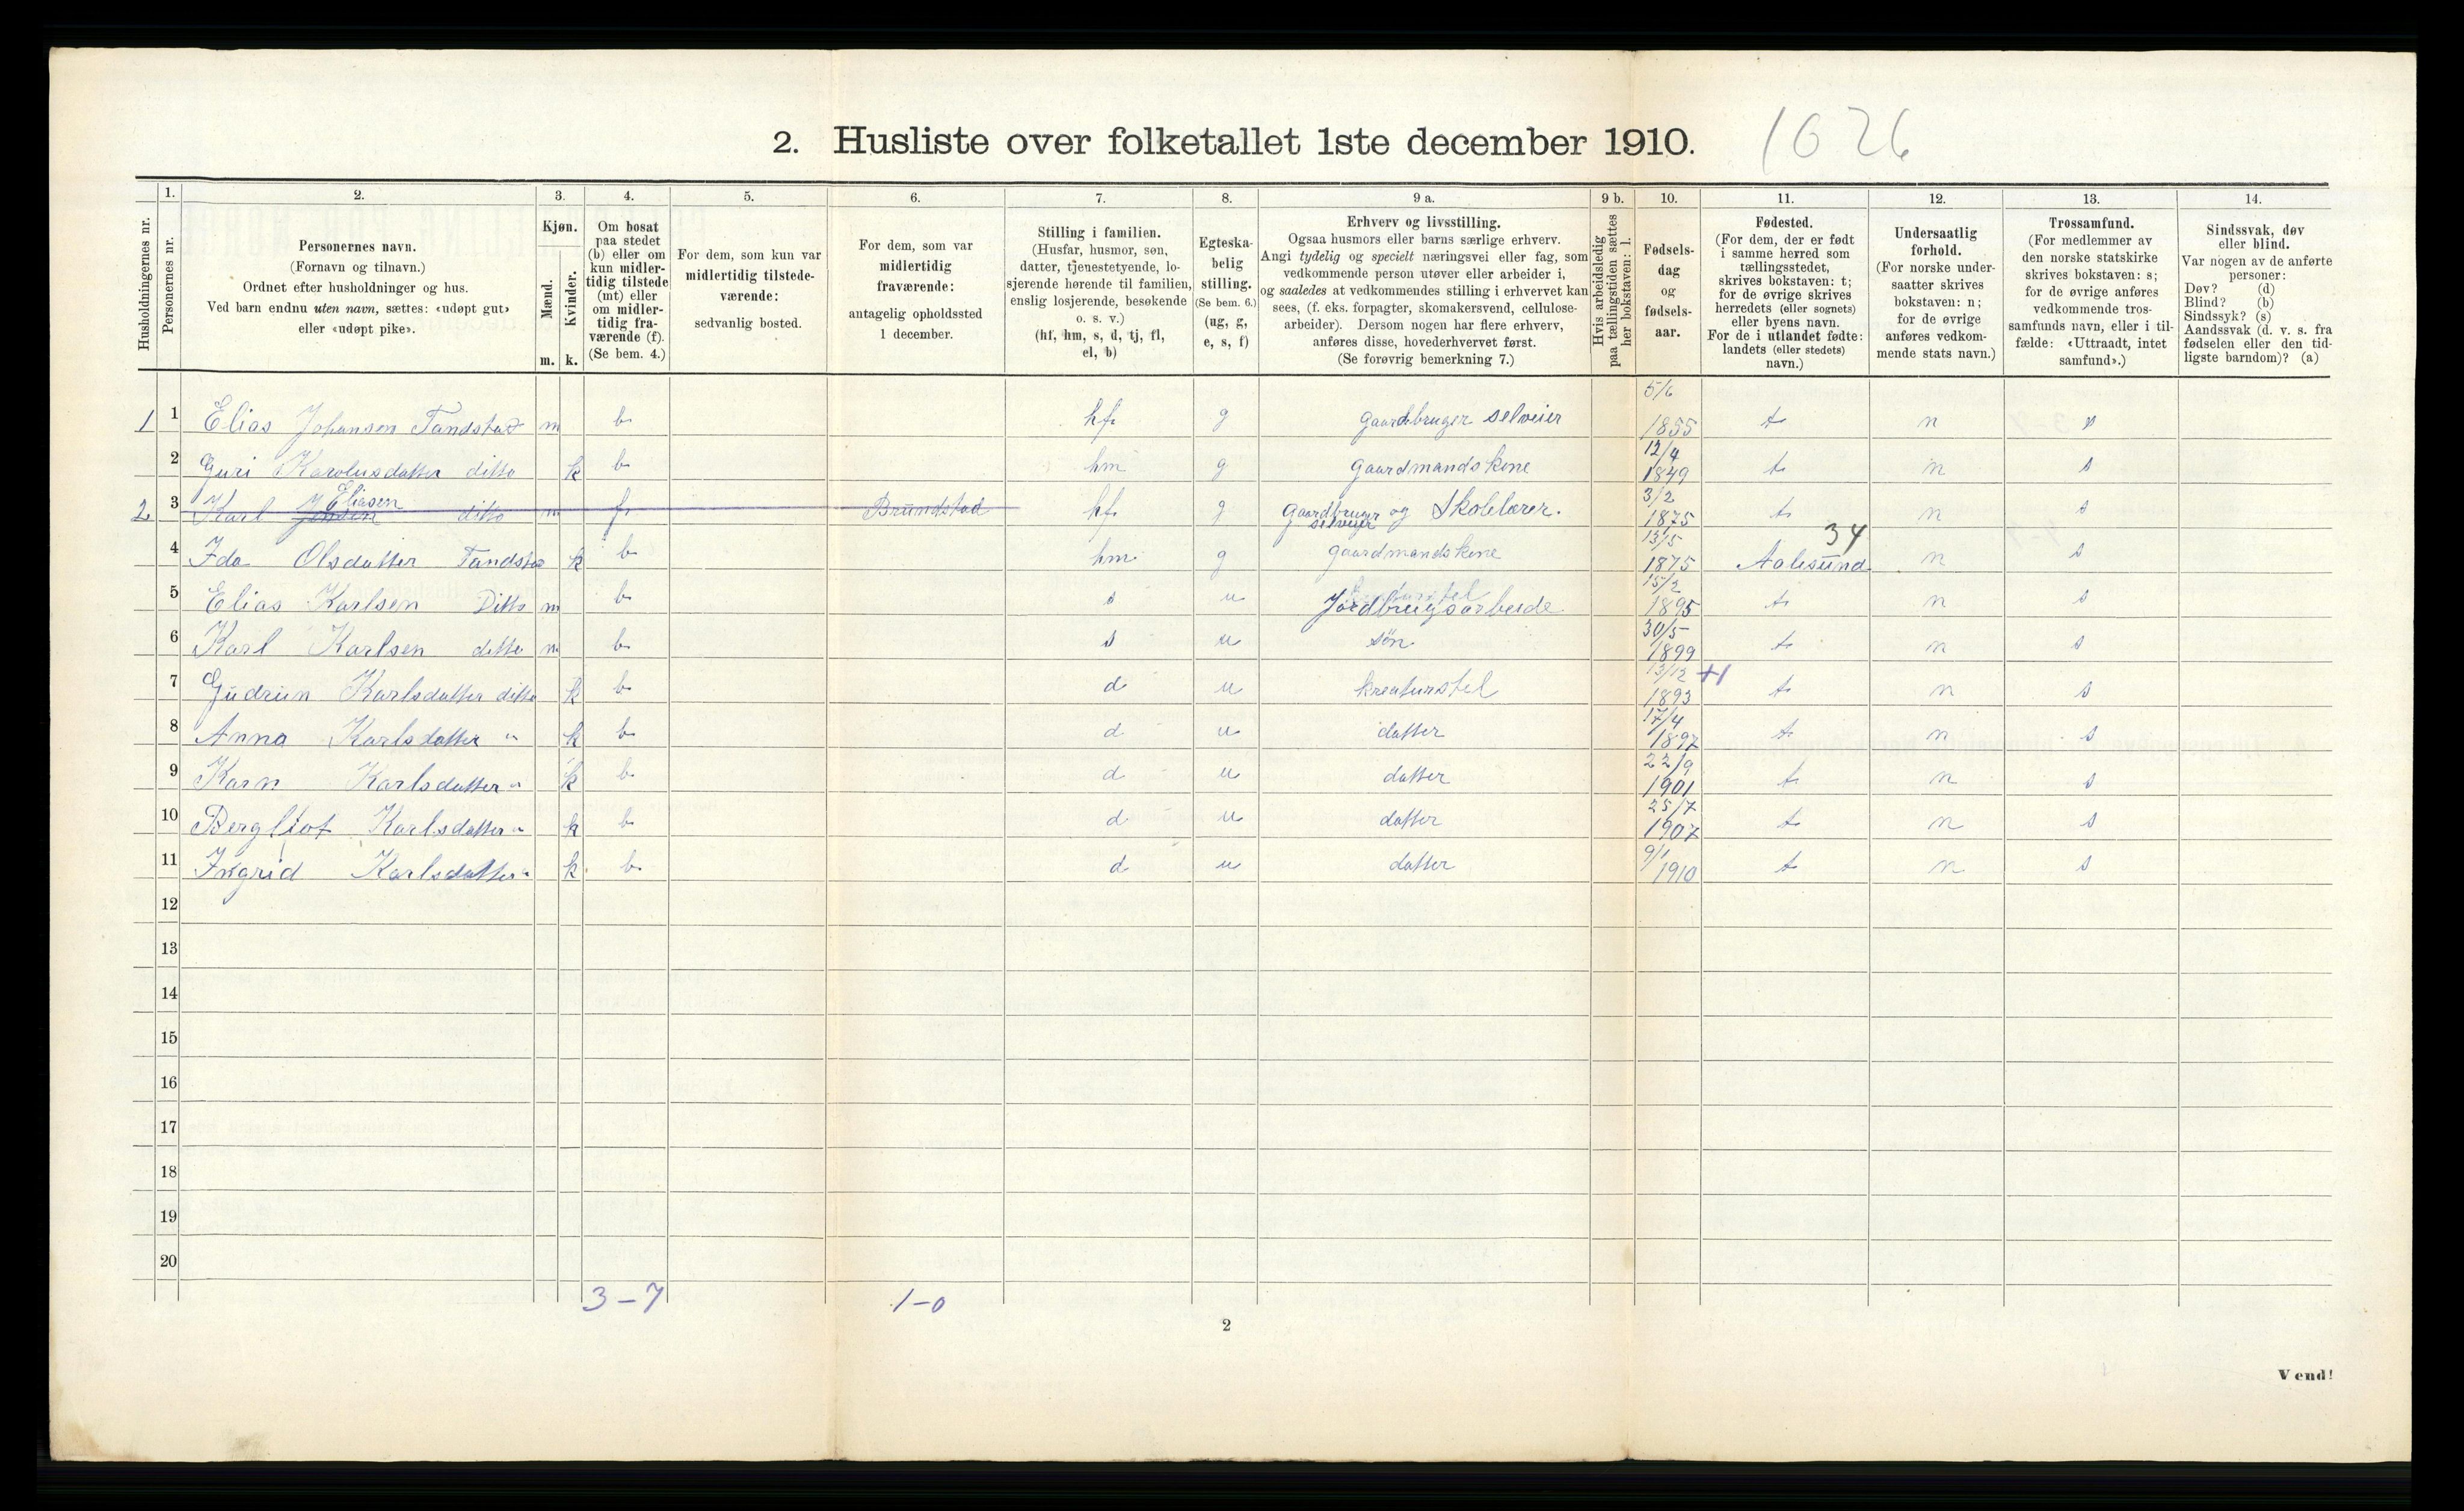 2. Husliste over folketallet 1ste december 1910. 1626
1. 2. 3. 4. 5. 6. 7. 8. 9 a. 9 b. 10. 11. 12. 13. 14.
Husholdningernes nr.
Personernes nr.
Personernes navn.
(Fornavn og tilnavn.)
Ordnet efter husholdninger og hus.
Ved barn endnu uten navn, sættes: «udøpt gut»
eller «udøpt pike».
Kjøn.
Mænd.
Kvinder.
m. k.
Om bosat
paa stedet
(b) eller om
kun midler-
tidig tilstede
(mt) eller
om midler-
tidig fra-
værende (f).
(Se bem. 4.)
For dem, som kun var
midlertidig tilstede-
værende:
sedvanlig bosted.
For dem, som var
midlertidig
fraværende:
antagelig opholdssted
1 december.
Stilling i familien.
(Husfar, husmor, søn,
datter, tjenestetyende, lo-
sjerende hørende til familien,
enslig losjerende, besøkende
o. s. v.)
(hf, hm, s, d, tj, fl,
el, b)
Egteska-
belig
stilling.
(Se bem. 6.)
(ug, g,
e, s, f)
Erhverv og livsstilling.
Ogsaa husmors eller barns særlige erhverv.
Angi tydelig og specielt næringsvei eller fag, som
vedkommende person utøver eller arbeider i,
og saaledes at vedkommendes stilling i erhvervet kan
sees, (f. eks. forpagter, skomakersvend, cellulose-
arbeider). Dersom nogen har flere erhverv,
anføres disse, hovederhvervet først.
(Se forøvrig bemerkning 7.)
Hvis arbeidsledig
paa tællingstiden sættes
her bokstaven: l.
Fødsels-
dag
og
fødsels-
aar.
Fødested.
(For dem, der er født
i samme herred som
tællingsstedet,
skrives bokstaven: t;
for de øvrige skrives
herredets (eller sognets)
eller byens navn.
For de i utlandet fødte:
landets (eller stedets)
navn.)
Undersaatlig
forhold.
(For norske under-
saatter skrives
bokstaven: n;
for de øvrige
anføres vedkom-
mende stats navn.)
Trossamfund.
(For medlemmer av
den norske statskirke
skrives bokstaven: s;
for de øvrige anføres
vedkommende tros-
samfunds navn, eller i til-
fælde: «Uttraadt, intet
samfund».)
Sindssvak, døv
eller blind.
Var nogen av de anførte
personer:
Døv? (d)
Blind? (b)
Sindssyk? (s)
Aandssvak (d. v. s. fra
fødselen eller den tid-
ligste barndom)? (a)
1 1 Elias Johansen Tandstad m b hf g gaardbruger selveier 5/6 1855 t n s
2 Guri Karolusdatter ditto k b hm g gaardmandskone 12/4 1849 t n s
2 3 Karl Jensen Eliasen ditto m f Brundstad hf g Gaardbruger selveier og Skolelærer. 3/2 1875 t n s
4 Ida Olsdatter Tandstad k b hm g gaardmandskone 13/5 1875 Aalesund 34 n s
5 Elias Karlsen Ditto m b s u Jordbrugsarbeide 15/2 1895 t n s
6 Karl Karlsen ditto m b s u søn 30/5 1899 t n s
7 Gudrun Karlsdatter ditto k b d u kreaturstel 13/12 1893 +1 t n s
8 Anna Karlsdatter " k b d u datter 17/4 1897 t n s
9 Karn Karlsdatter " k b d u datter 22/9 1901 t n s
10 Bergliot Karlsdatter " k b d u datter 25/7 1907 t n s
11 Ingrid Karlsdatter " k b d u datter 9/1 1910 t n s
12
13
14
15
16
17
18
19
20
3-7 1-0
2
Vend!